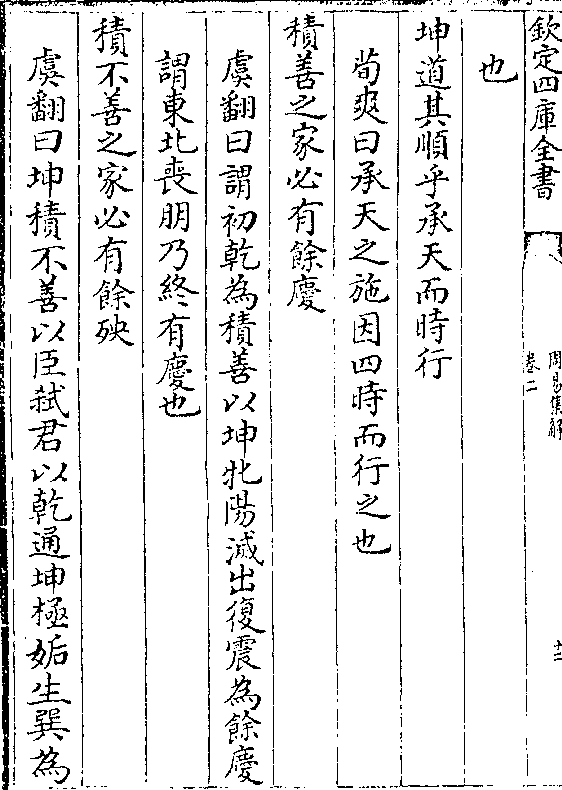 欽定四庫全書
周易集解
卷二
十二
也
坤道其順乎承天而時行
荀爽曰承天之施因四時而行之也
積善之家必有餘慶
虞翻曰謂初乾為積善以坤牝陽滅出復震為餘慶
謂東北喪朋乃終有慶也
積不善之家必有餘殃
虞翻曰坤積不善以臣弒君以乾通坤極姤生巽為